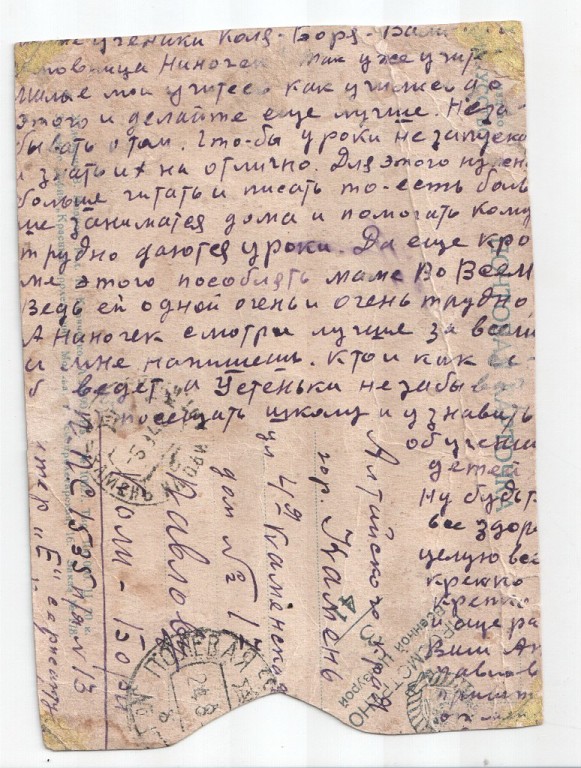 же ученики Коля - Боря - Валя
Ниночек. Так уже учите
милые мои учитесь как учились до
этого и делайте еще лучше. Неза-
бывать о том. Что-бы уроки не запуска
и знать их на отлично. Для этого нужен
больше читать и писать то-есть боль
ше заниматся дома и помогать кому
трудно даются уроки. Да еще кро
ме этого пособлять маме Во Всем
Ведь ей одной очень и очень трудно
А Ниночек смотри лучше за всеми
и мне напишешь. Кто и как с-
б ведет, а Устенька незабыв
посещать школу и узнавать
об учении
детей
Ну будьт
все здоро
целую все
крепко
крепко
и еще ра
Ваш
Алтайского края
гор. Камень
ул 4я Каменская
дом № 17
Павлов
п/я № 13
ПОЛЕВАЯ
КАМЕНЬ
ПРОСМОТРЕНО
Военной
цензурой